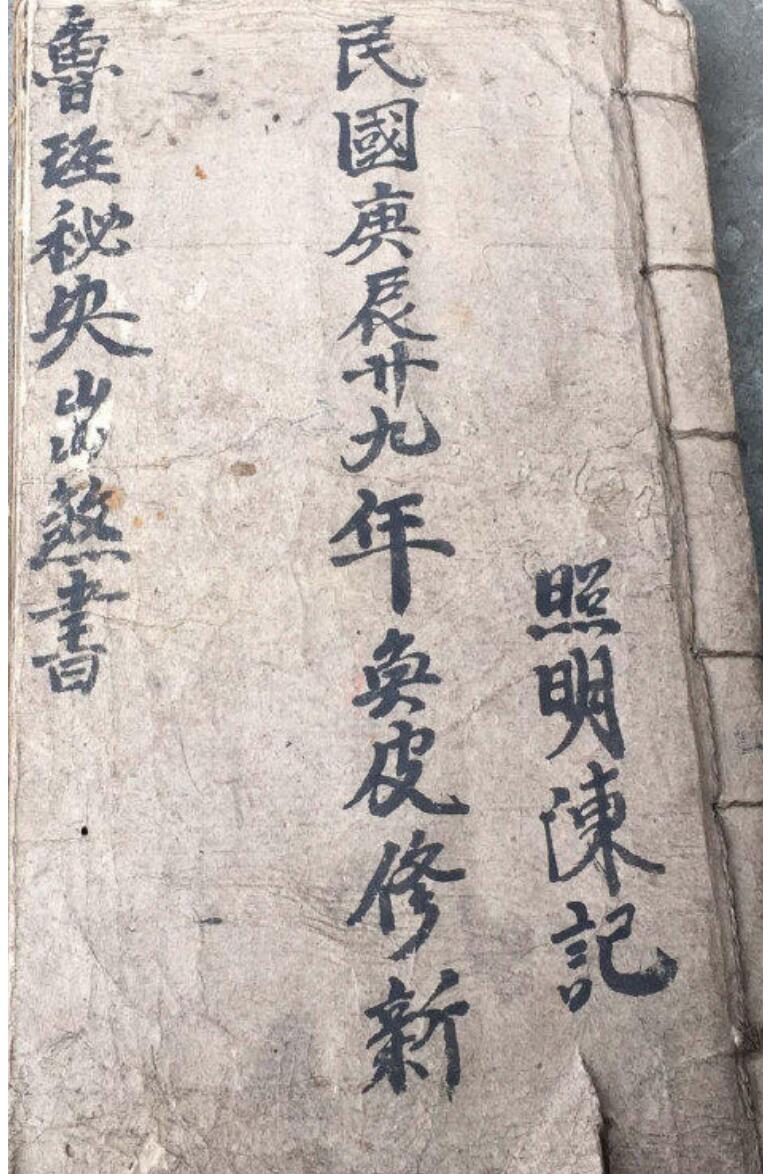 照明陳記
民國庚辰廿九年奐皮修新
魯班秘央出煞書